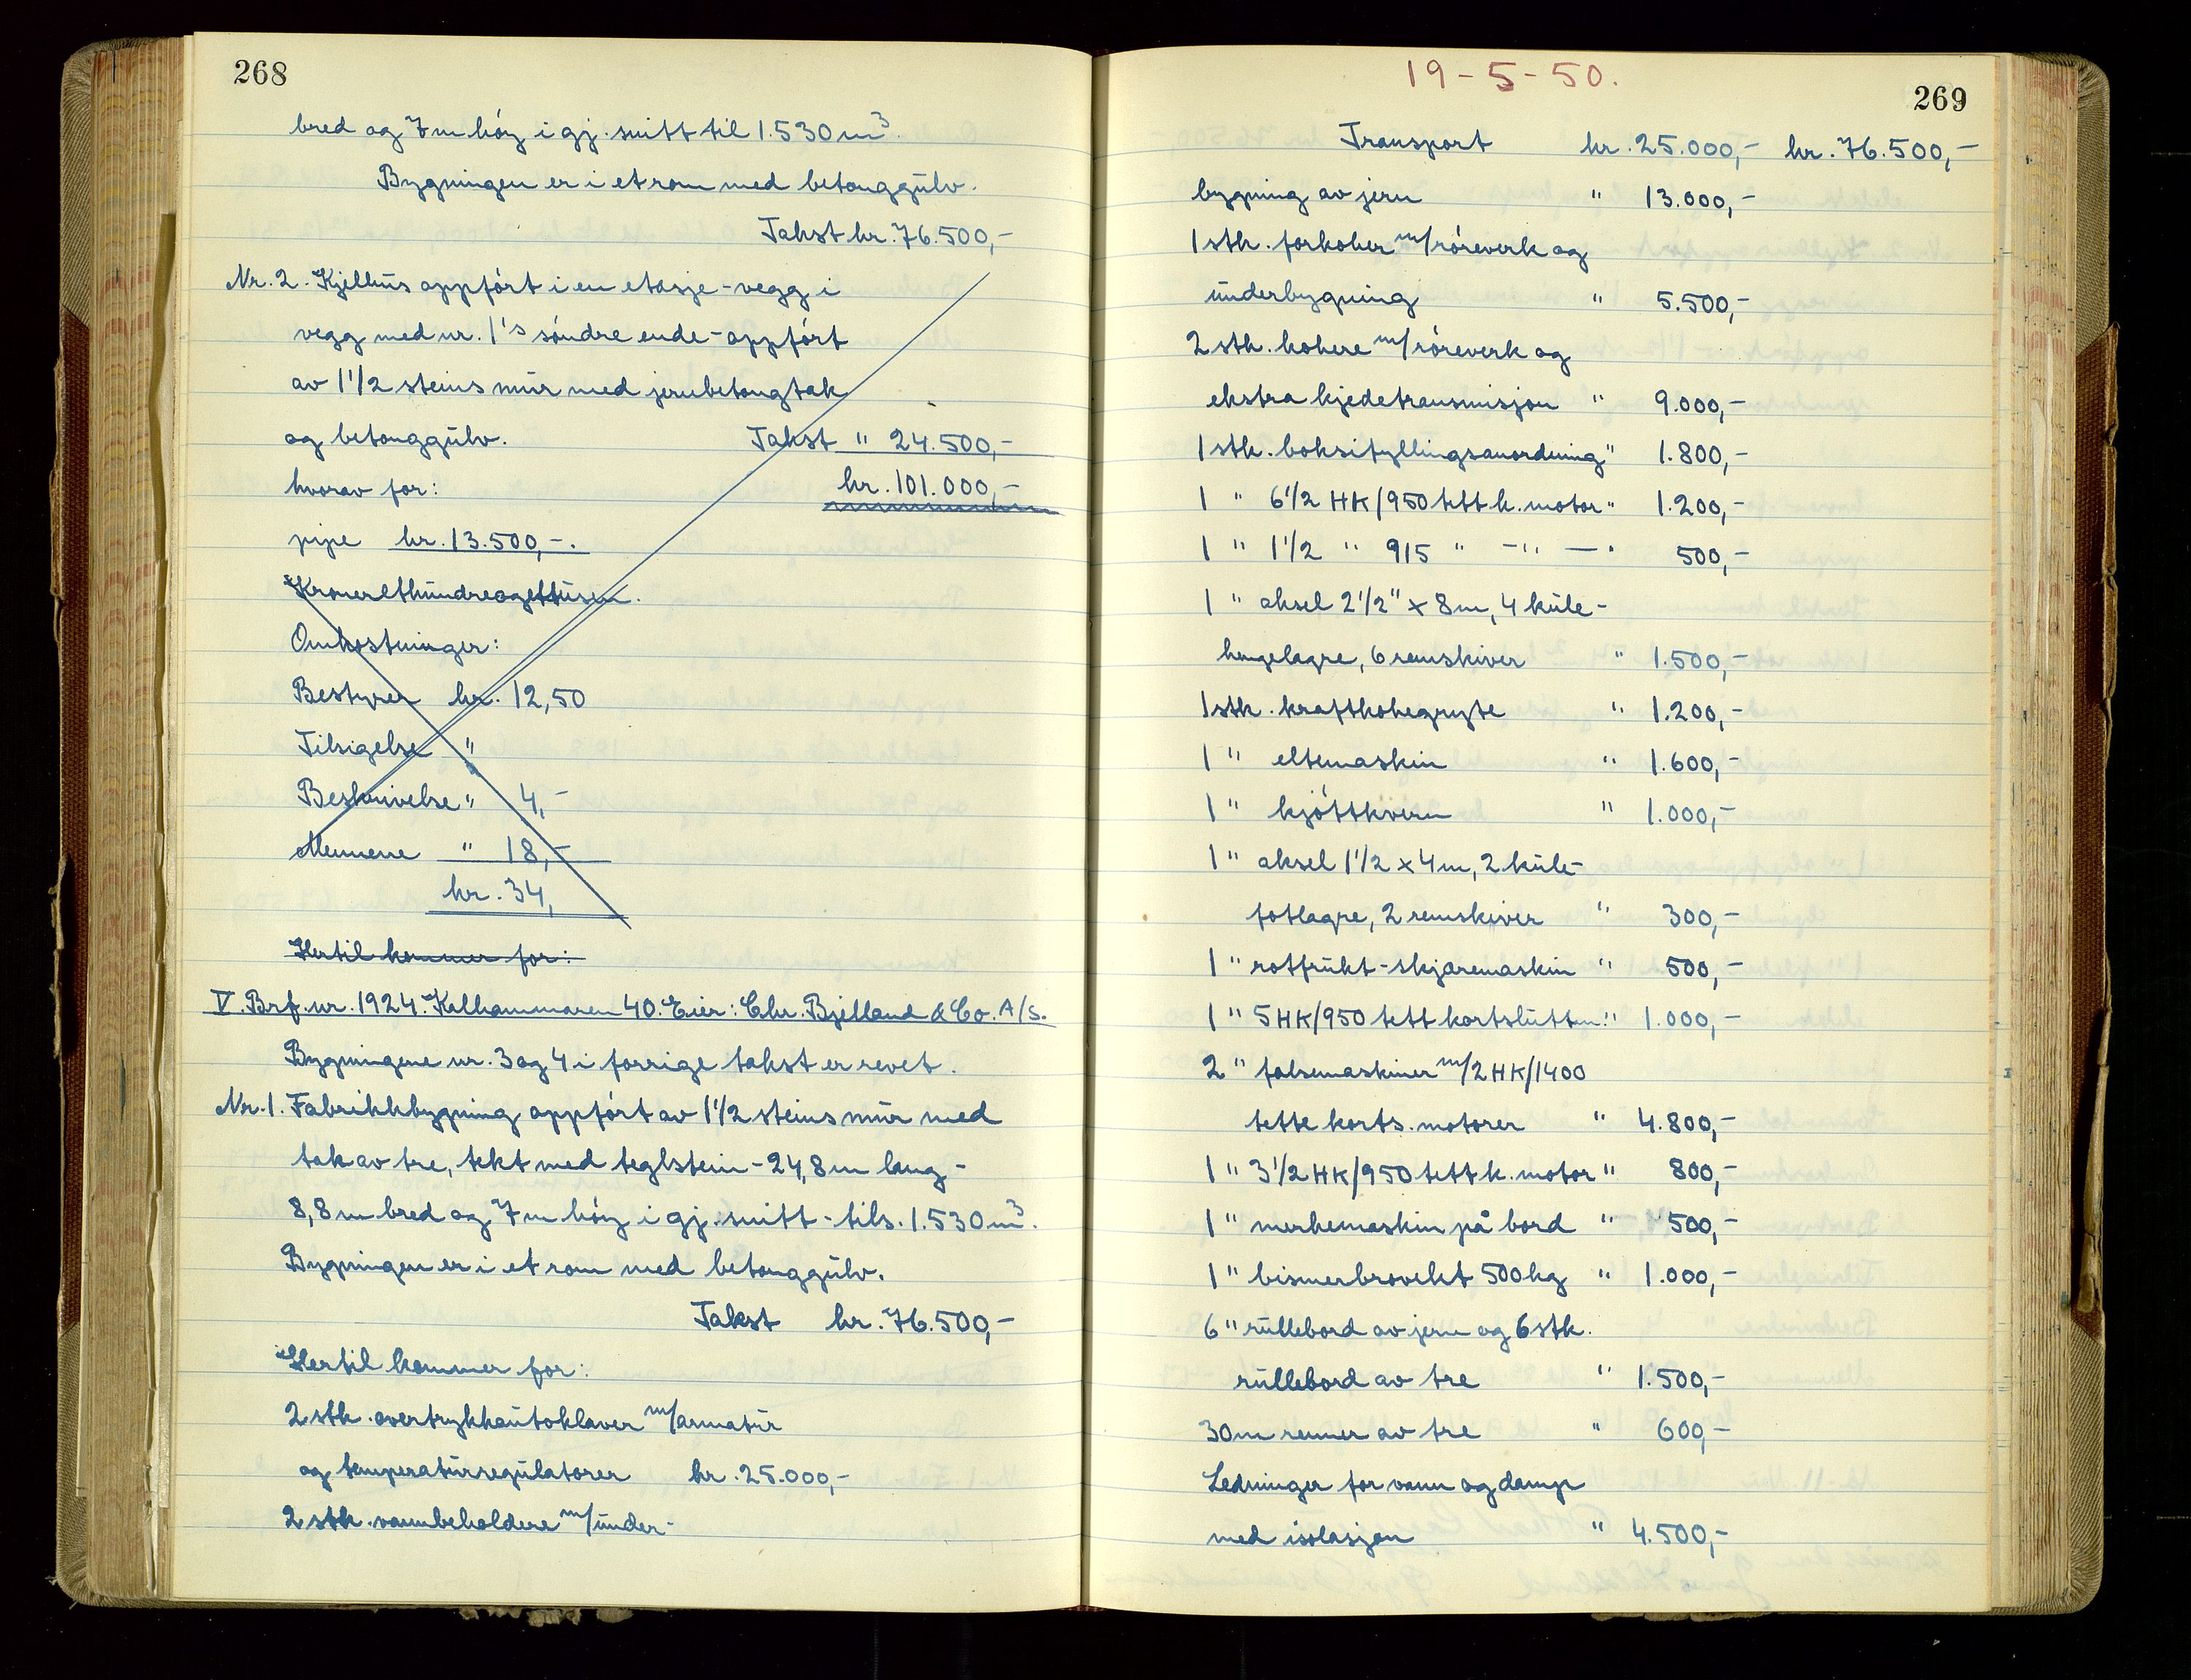 268
bred og 7 m høy i gj. snitt til 1.530 m³.
Bygningen er i et rom med betonggulv.
Takst kr. 76.500,-
Nr. 2. Kjelhus oppført i en etasje - vegg i
vegg med nr. 1's søndre ende - oppført
av 1 1/2 steins mur med jernbetongtak
og betonggulv. Takst " 24.500,-
hvorav for: kr. 101.000,-
pipe kr. 13.500,-.
Kroneretthundreogettusen.
Omkostninger:
Bestyrer kr. 12,50
Tilsigelse "
Beskrivelse " 4,-
Mennene " 18,-
kr. 34,
Hertil kommer for:
V. Brf. nr. 1924. Kelhammaren 40. Eier: Chr. Bjelland & Co. A/S.
Bygningene nr. 3 og 4 i forrige takst er revet.
Nr. 1. Fabrikkbygning oppført av 1 1/2 steins mur med
tak av tre, tekt med teglstein - 24,8 m lang -
8,8 m bred og 7 m høy i gj. snitt - tils. 1.530 m³.
Bygningen er i et rom med betonggulv.
Takst kr. 76.500,-
Hertil kommer for:
2 stk. overtrykkautoklaver m/armatur
og temperaturregulatorer kr. 25.000,-
2 stk. vannbeholdere m/under-
19-5-50.
269
Transport kr. 25.000,- kr. 76.500,-
bygning av jern " 13.000,-
1 stk. forkoker m/røreverk og
underbygning " 5.500,-
2 stk. kokere m/røreverk og
ekstra kjedetransmisjon " 9.000,-
1 stk. boksifyllingsanordning " 1.800,-
1 " 6 1/2 HK/950 tett k. motor " 1.200,-
1 " 1 1/2 " 915 " -"- " 500,-
1 " aksel 2 1/2" x 8 m, 4 kule-
hengelagre, 6 remskiver " 1.500,-
1 stk. kraftkokegryte " 1.200,-
1 " eltemaskin " 1.600,-
1 " kjøttkvern " 1.000,-
1 " aksel 1 1/2 x 4 m, 2 kule-
fotlagre, 2 remskiver " 300,-
1 " rotfrukt-skjæremaskin " 500,-
1 " 5 HK/950 tett kortslutt m. " 1.000,-
2 " falsemaskiner m/2 HK/1400
tette korts. motorer " 4.800,-
1 " 3 1/2 HK/950 tett k. motor " 800,-
1 " merkemaskin på bord " 500,-
1 " bismerbrovekt 500 kg " 1.000,-
6 " rullebord av jern og 6 stk.
rullebord av tre " 1.500,-
30 m renner av tre " 600,-
Ledninger for vann og damp
med isolasjon " 4.500,-